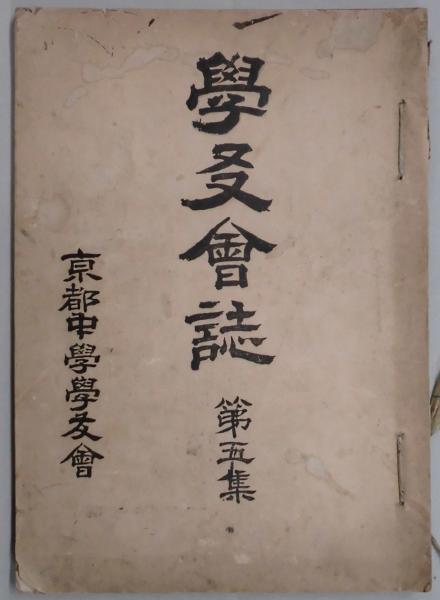 學友會誌
第五集
京都中學學友會